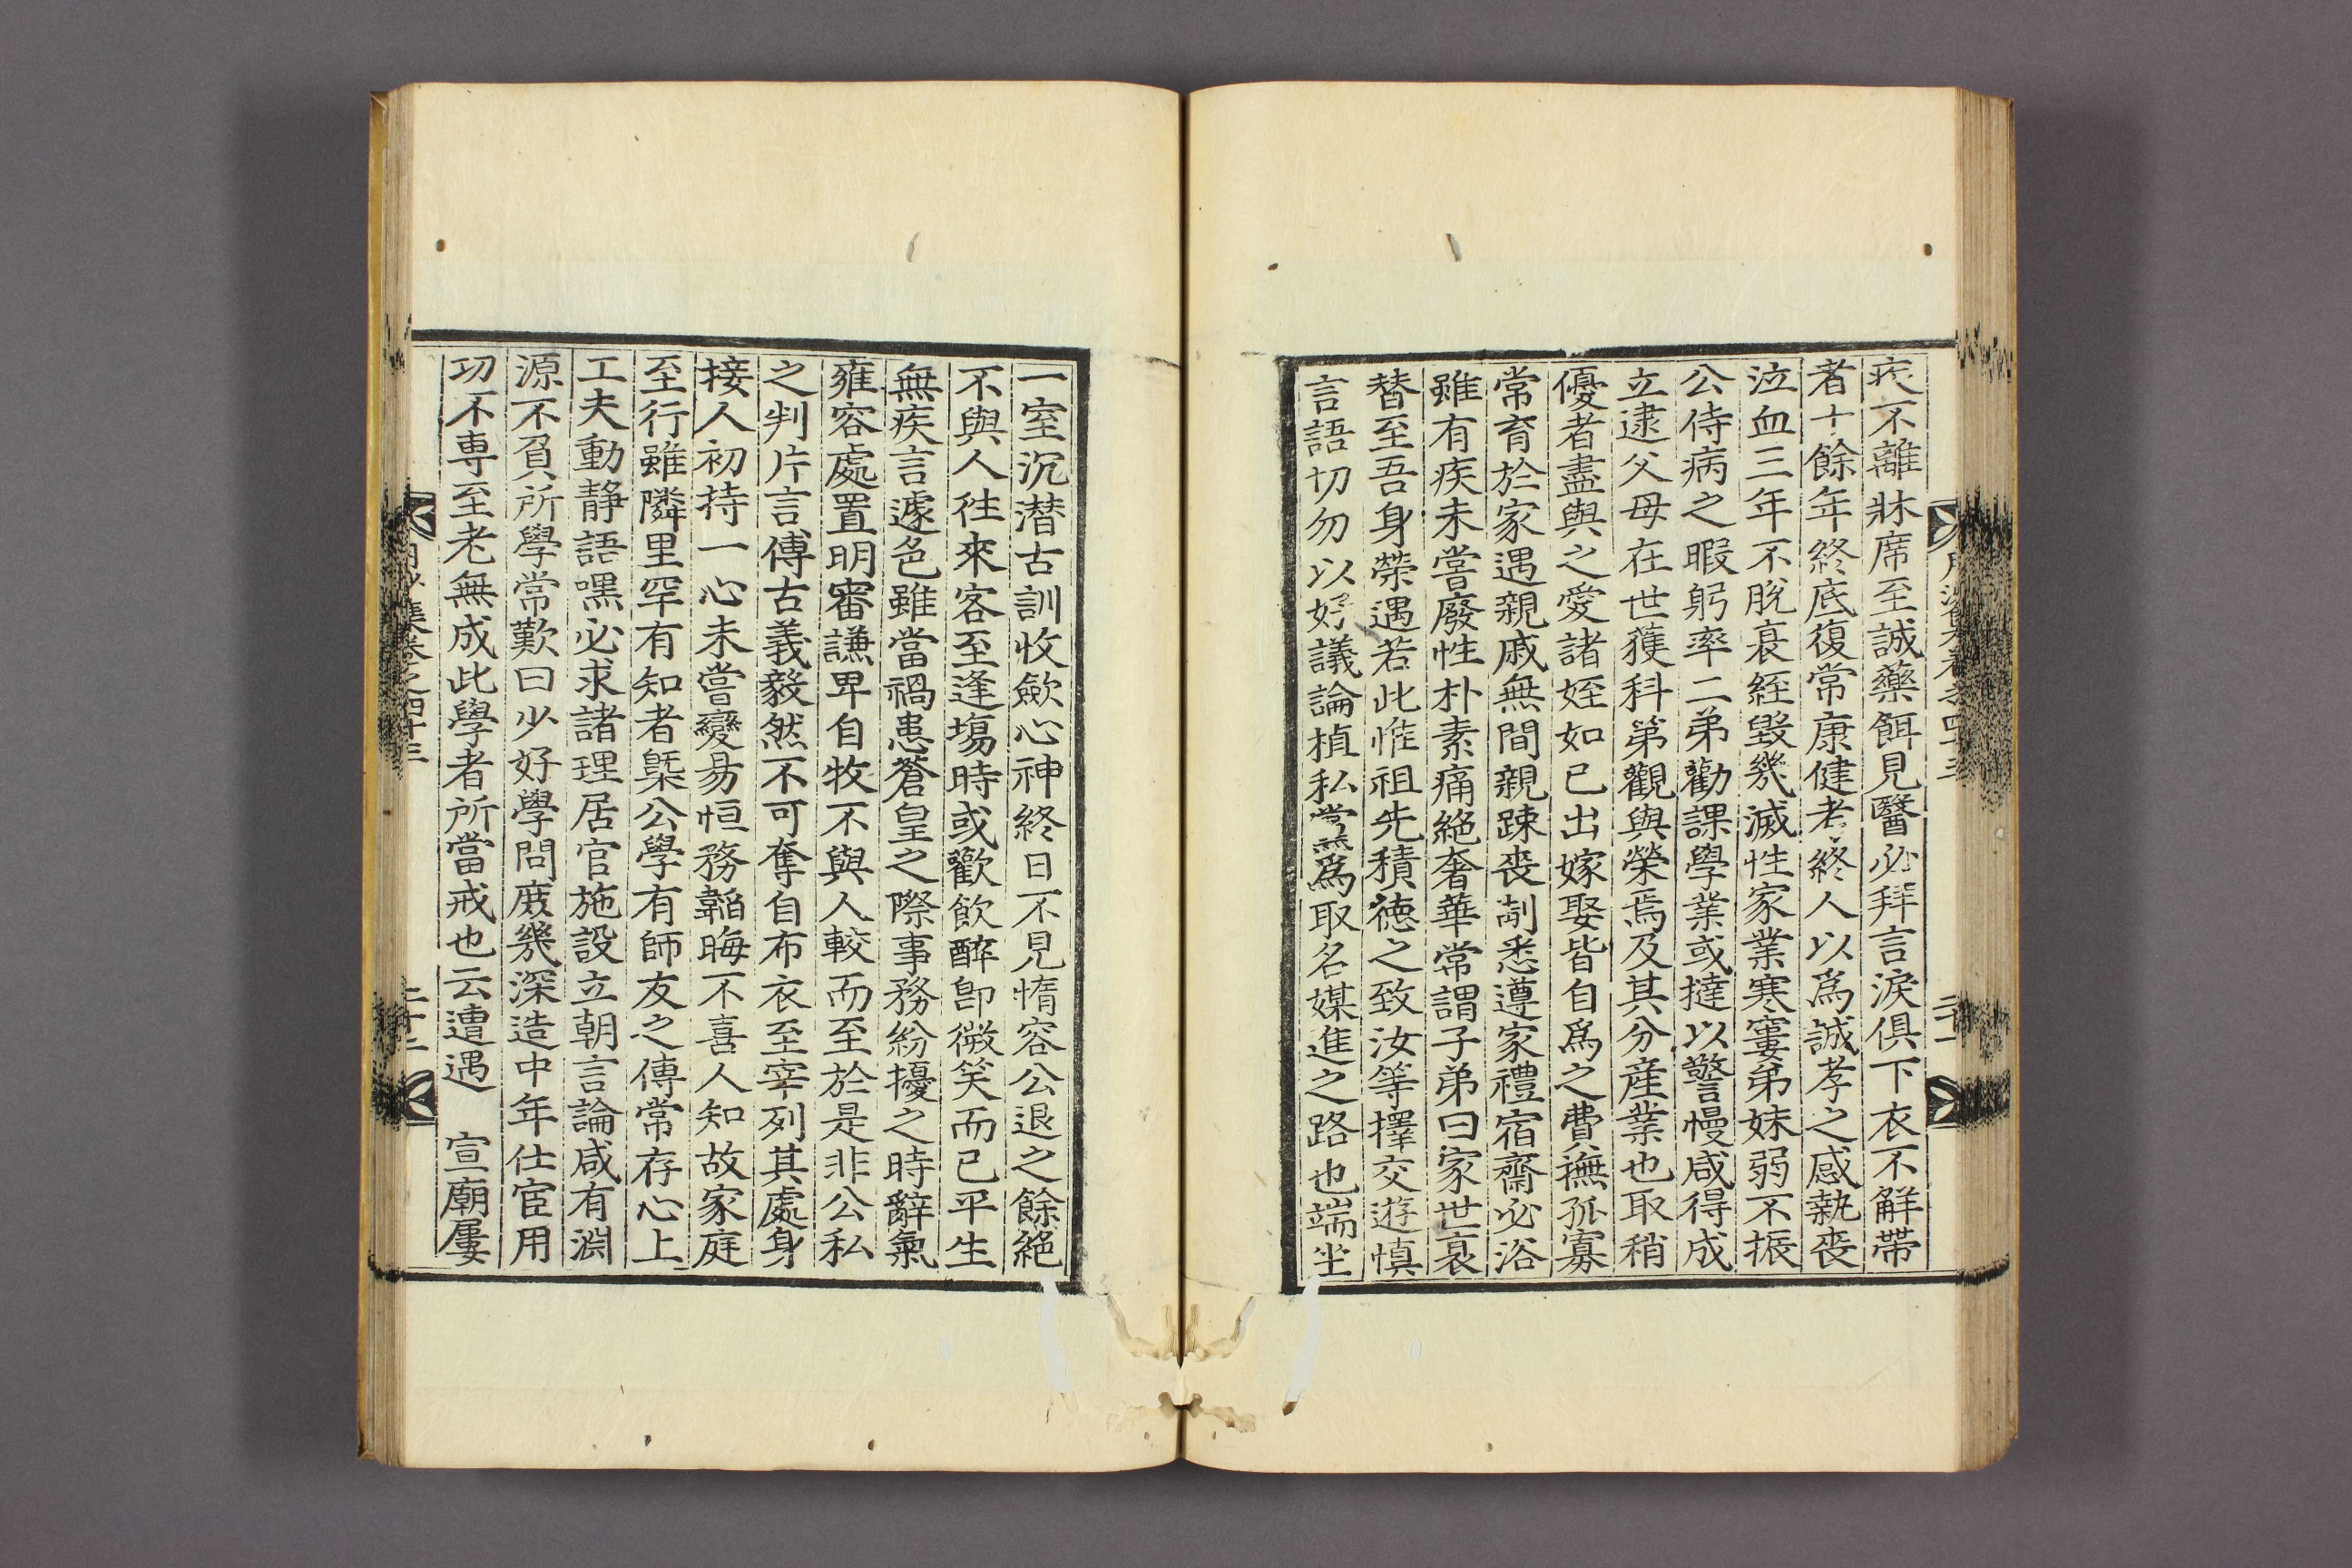 疾不離牀席至誠藥餌見醫必拜言淚俱下衣不解帶
者十餘年終底復常康健考終人以爲誠孝之感執喪
泣血三年不脫衰絰毀幾滅性家業寒窶弟妹弱不振
公侍病之暇躬率二弟勸課學業或撻以警慢咸得成
立逮父母在世獲科第觀與榮焉及其分産業也取稍
優者盡與之愛諸姪如己出嫁娶皆自爲之費撫孤寡
常育於家遇親戚無間親踈喪制悉遵家禮宿齋必浴
雖有疾未嘗廢性朴素痛絶奢華常謂子弟曰家世衰
替至吾身榮遇若此惟祖先積德之致汝等擇交遊愼
言語切勿以好議論植私黨爲取名媒進之路也端坐
二十一
一室沉潛古訓收歛心神終日不見惰容公退之餘絶
不與人徃來客至逢塲時或歡飮醉卽微笑而已平生
無疾言遽色雖當禍患蒼皇之際事務紛擾之時辭氣
雍容處置明審謙卑自牧不與人較而至於是非公私
之判片言傅古義毅然不可奪自布衣至宰列其處身
接人初持一心未嘗變易恒務韜晦不喜人知故家庭
至行雖隣里罕有知者槩公學有師友之傳常存心上
工夫動靜語嘿必求諸理居官施設立朝言論咸有淵
源不負所學常歎曰少好學問庻幾深造中年仕宦用
功不専至老無成此學者所當戒也云遭遇　宣廟屢
集卷之四十三
二十二